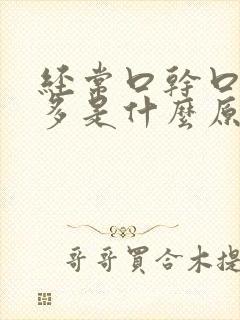 經常口幹口
多是什麼原
哥哥買合木提